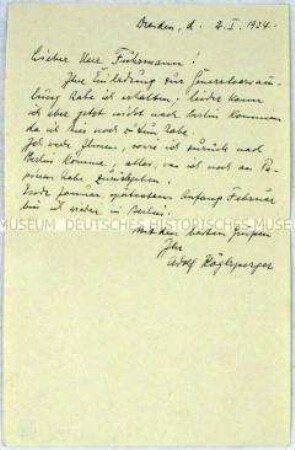 Dresden, d. 2. I. 1934.
Lieber Herr Fuhrmann!
Ihre Einladung zur Generalversam-
lung habe ich erhalten; leider kann
ich aber jetzt nicht nach Berlin kommen
da ich hier noch zu tun habe.
Ich werde Ihnen, sowie ich zurück nach
Berlin komme, alles, was ich noch an Pa-
pieren habe zurückgeben.
Ende Januar, spätestens Anfang Februar
bin ich wieder in Berlin.
MUSEUM DEUTSCHES HISTORISCHES MUSEUM
Mit den besten Grüßen
Ihr
Adolf